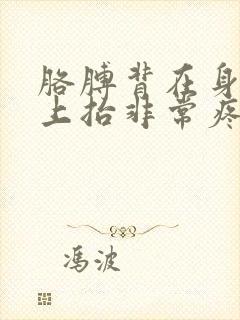 胳膊背在身
上抬非常疼
冯波